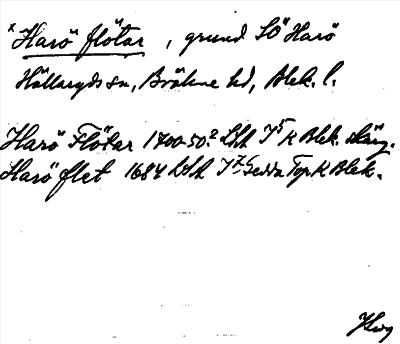 x Harö flötar, grund SÖ Harö
Hällaryds sn, Bräkne hd, Blek. l.
Harö Flötar 1700-50.? K Blek. skärg.
Harö flet 1684 Gedda Top K Blek.